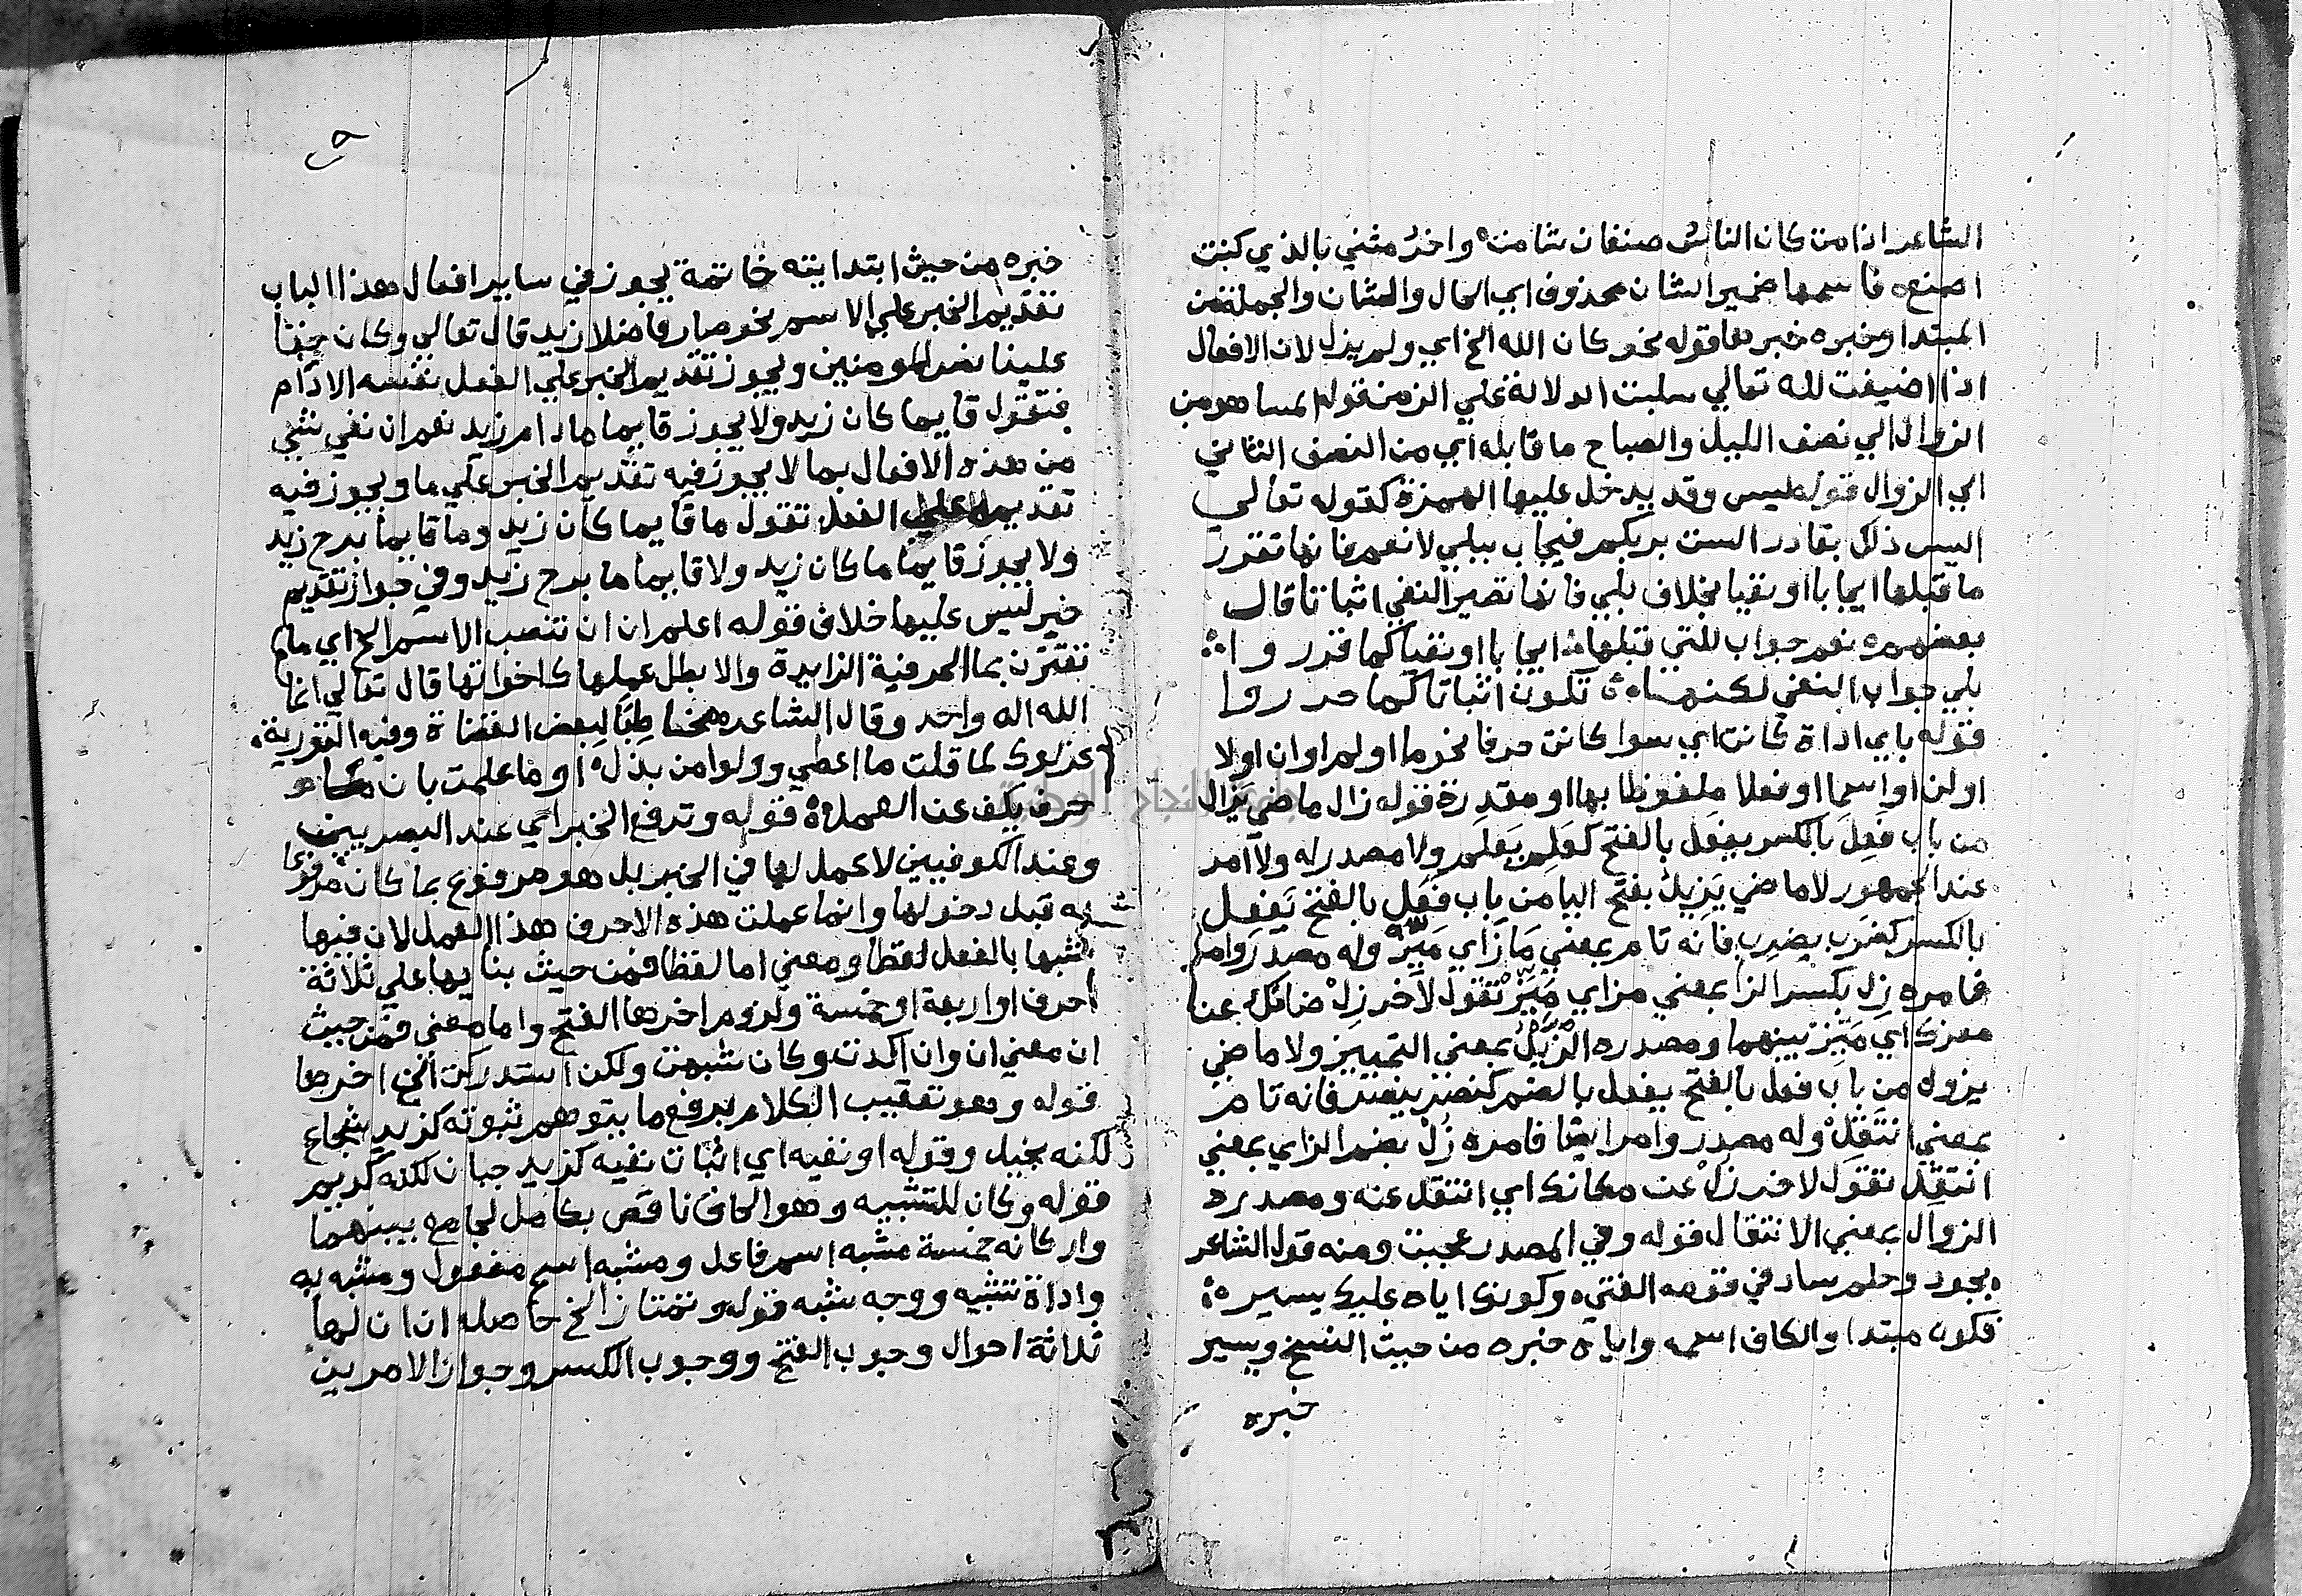 الشاعر اذا مت كان الناسُ صنفان شامتْ واخرُ مثني بالذي كنت
اصنع فاسمها ضمير الشان محذوف اي الحال والشان والجملة من
المبتدا وخبره خبرها قوله نحو كان الله الخ اي ولم يزل لان الافعال
اذا اضيفت لله تعالي سلبت الدلالة علي الزمن قوله المسا هو من
الزوال الي نصف الليل والصباح ما قابله اي من النصف الثاني
الي الزوال قوله ليس وقد يدخل عليها الهمزة كقوله تعالي
اليس ذلك بقادر الست بربكم فيجاب ببلي لا نعم فانها تقرر
ما قبلها ايجابا او نفيا بخلاف بلي فانها تصير النفي اثباتا قال
بعضهم نعم جواب للتي قبلها ايجابا او نفيا كما قرروا
بلي جواب النفي لكنها تكون اثباتا كما حرروا
قوله باي اداة كانت اي سوا كانت حرفا نحو ما او لم او ان او لا
او لن او اسما او فعلا ملفوظا بها او مقدرة قوله زال ماضي يَزال
من باب فَعِلَ بالكسر يفعَل بالفتح كعَلِم يَعلم ولا مصدر له ولا امر
عند الجمهور لا ماضي يَزِيلُ بفتح اليا من باب فَعَل بالفتح يَفعِل
بالكسر كضرَب يضرِب فانه تام بمعني مَازَ اي مَيَّزَ وله مصدر وامر
فامره زِل بكسر الزا بمعني مز اي مَيِّزْ تقول لآخر زِلْ ضانك عن
معزك اي مَيِّز بينهما ومصدره الزَّيلُ بمعني التمييز ولا ماضي
يزول من باب فعل بالفتح يفعل بالضم كنصَر ينصُر فانه تام
بمعني انتَقَلَ وله مصدر وامر ايضا فامره زُلْ بضم الزاي بمعني
انتقِل تقول لاخر زُلْ عن مكانك اي انتقل عنه ومصدره
الزوال بمعني الانتقال قوله وفي المصدر عجبت ومنه قول الشاعر
ببجود وحلم ساد في قومه الفتي وكونك اياه عليك يسير
فكون مبتدا والكاف اسمه واياه خبره من حيث النسخ ويسير
خبره
خبره من حيث ابتدايته خاتمة يجوز في ساير افعال هذا الباب
تقديم الخبر علي الاسم نحو صار فاضلا زيد قال تعالي وكان حقا
علينا نصر المومنين ويجوز تقديم الخبر علي الفعل نفسه الا دام
فتقول قايما كان زيد ولا يجوز قايما ما دام زيد نعم ان نفي شي
من هذه الافعال بما لا يجوز فيه تقديم الخبر علي ما ويجوز فيه
تقديمه علي الفعل تقول ما قايما كان زيد وما قايما برح زيد
ولا يجوز قايما ما كان زيد ولا قايما ما برح زيد وفي جواز تقديم
خبر ليس عليها خلاف قوله اعلم ان ان تنصب الاسم الخ اي ما لم
تقترن بما الحرفية الزايدة والا بطل عملها كاخواتها قال تعالي انما
الله اله واحد وقال الشاعر مخاطِبًا لِبعض القضاة وفيه التورية
عزلوك لما قلت ما اعطي وولوا من بذلْ اوما علمت بان ما
حرف يكف عن العمل قوله وترفع الخبر اي عند البصريين
وعند الكوفيين لا عمل لها في الخبر بل هو مرفوع بما كان مرفوعا
به قبل دخولها وانما عملت هذه الاحرف هذا العمل لان فيها
شبها بالفعل لفظا ومعني اما لفظا فمن حيث بنايها علي ثلاثة
احرف او اربعة او خمسة ولزوم اخرها الفتح واما معني فمن حيث
ان معني ان وان اكدت وكان شبهت ولكن استدركت الخ اخرها
قوله وهو تعقيب الكلام برفع ما يتوهم ثبوته كزيد شجاع
لكنه بخيل وقوله او نفيه اي اثبات نفيه كزيد جبان لكنه كريم
قوله وكان للتشبيه وهو الحاق ناقص بكامل لجامع بينهما
واركانه خمسة مشبه اسم فاعل ومشبه اسم مفعول ومشبه به
واداة تشبيه ووجه شبه قوله وتمتاز الخ حاصله ان ان لها
ثلاثة احوال وجوب الفتح ووجوب الكسر وجواز الامرين